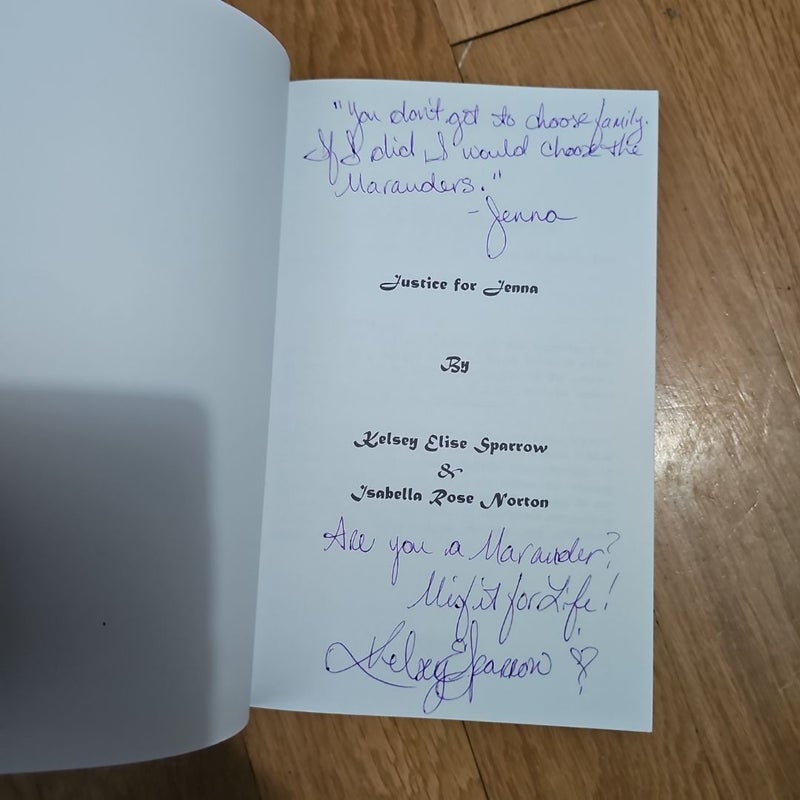 "You don't get to choose family.
If I did, I would choose the
Marauders."
- Jenna
Justice for Jenna
By
Kelsey Elise Sparrow
&
Isabella Rose Norton
Are you a Marauder?
Misfit for Life!
Kelsey E Sparrow